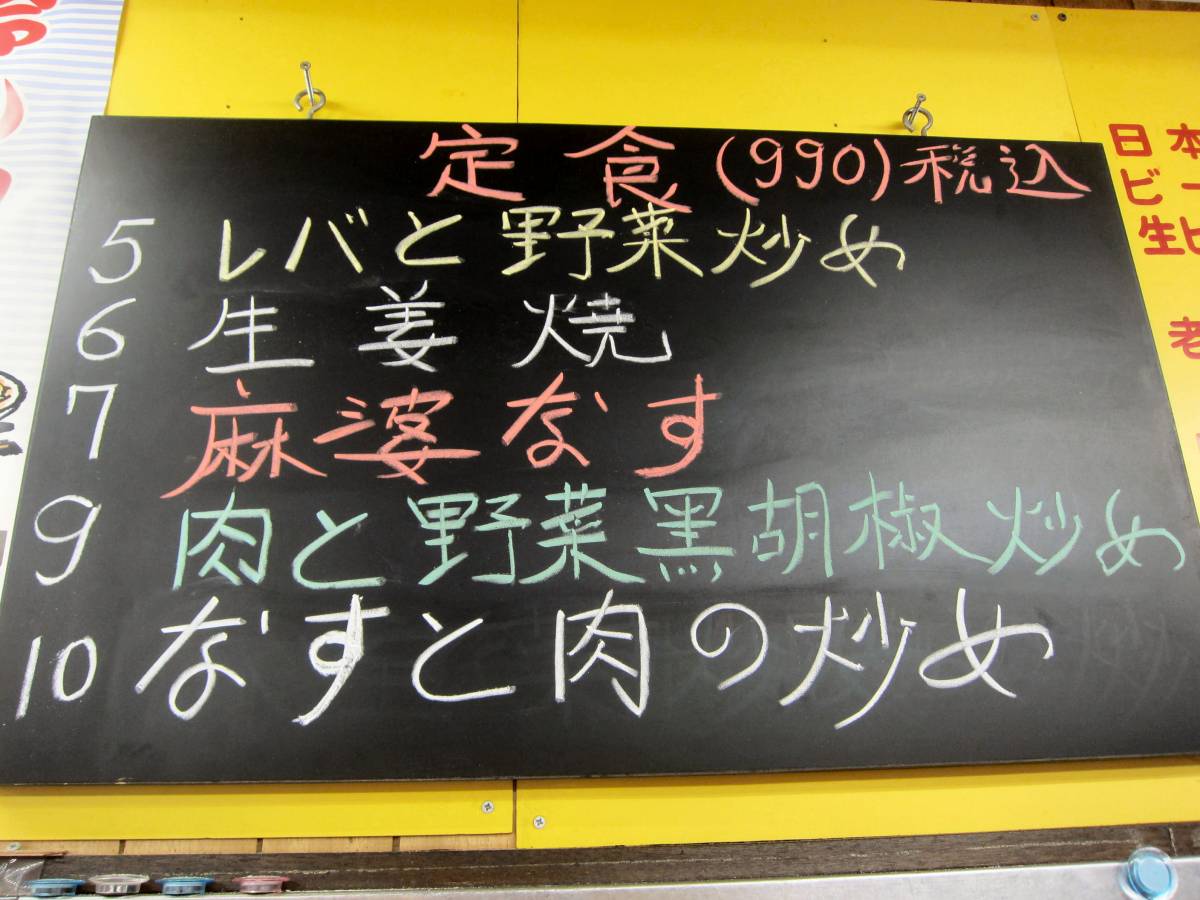 定食(990)税込
5 レバと野菜炒め
6 生姜焼
7 麻婆なす
9 肉と野菜黒胡椒炒め
10 なすと肉の炒め
日本
ビー
生ビ
老